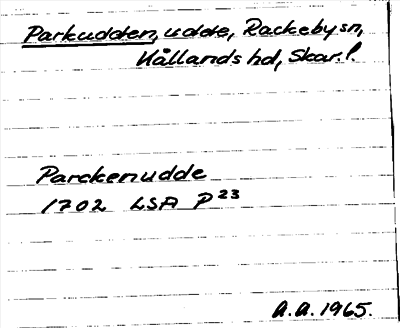 Parkudden, udde, Rackeby sn,
Kållands hd, Skar. l.
Parckenudde
1702 LSA P23
A.A. 1965.